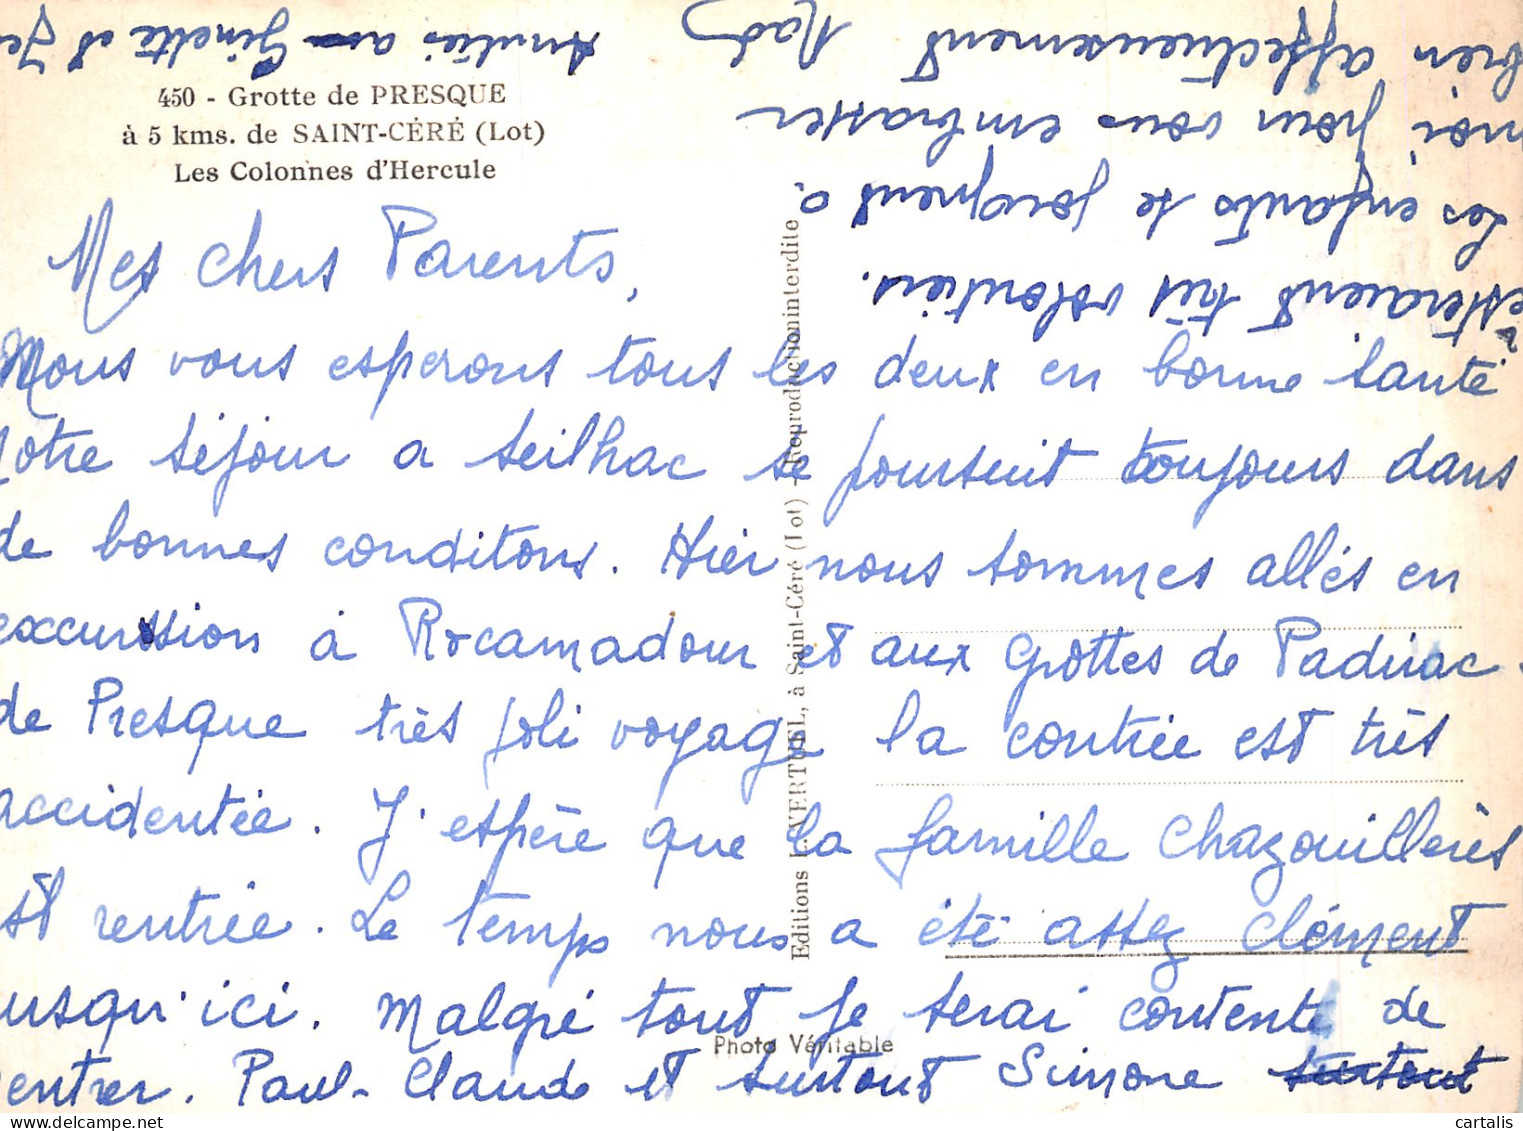 450 - Grotte de PRESQUE
à 5 kms. de SAINT-CÉRÉ (Lot)
Les Colonnes d'Hercule
Mes chers Parents,
Nous vous esperons tous les deux en bonne santé
otre séjour a seilhac se poursuit toujours dans
de bonnes conditons. Hier nous sommes allés en
excursion à Rocamadour et aux grottes de Padirac -
de Presque très joli voyage la contrée est très
accidentée. J'espère que la famille Chazouillères
est rentrée. Le temps nous a été assez clément
usqu'ici. Malgré tout je serai contente de
entrer. Paul-Claude et surtout Simone surtout
esteraient très volontiers.
Les enfants se joignent à
moi pour vous embrasser
bien affectueusement
Amitiés Ginette et Je
Editions L. VERTUEL, à Saint-Céré (Lot) - Reproduction interdite
Photo Véritable
cartalis